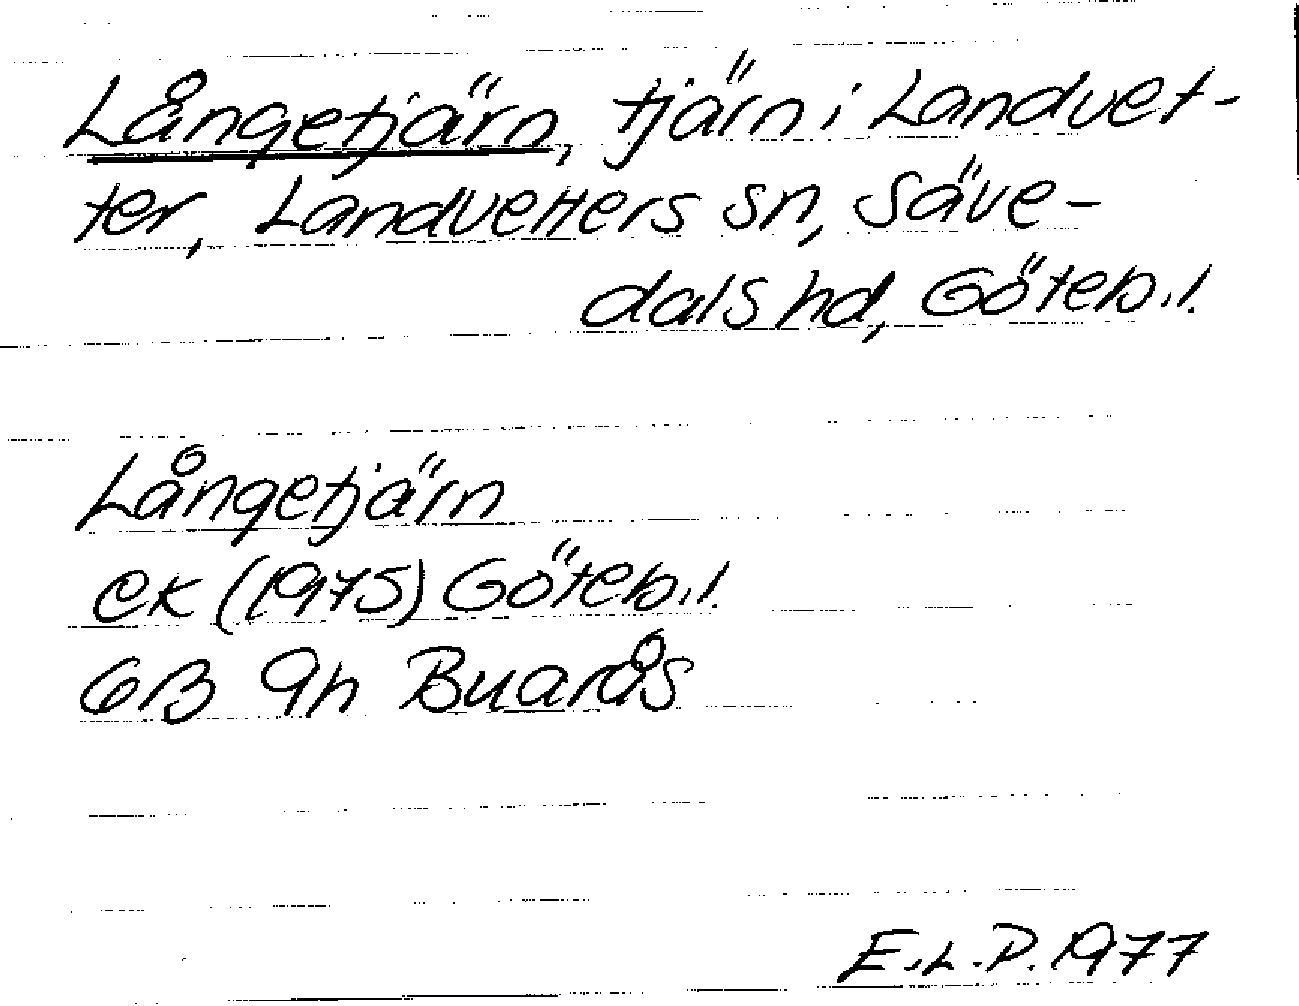 Långetjärn, tjärn i Landvet-
ter, Landvetters sn, Säve-
dals hd, Göteb. l.
Långetjärn
ek (1975) Göteb. l.
6B 9h Buarås
E.L.P. 1977